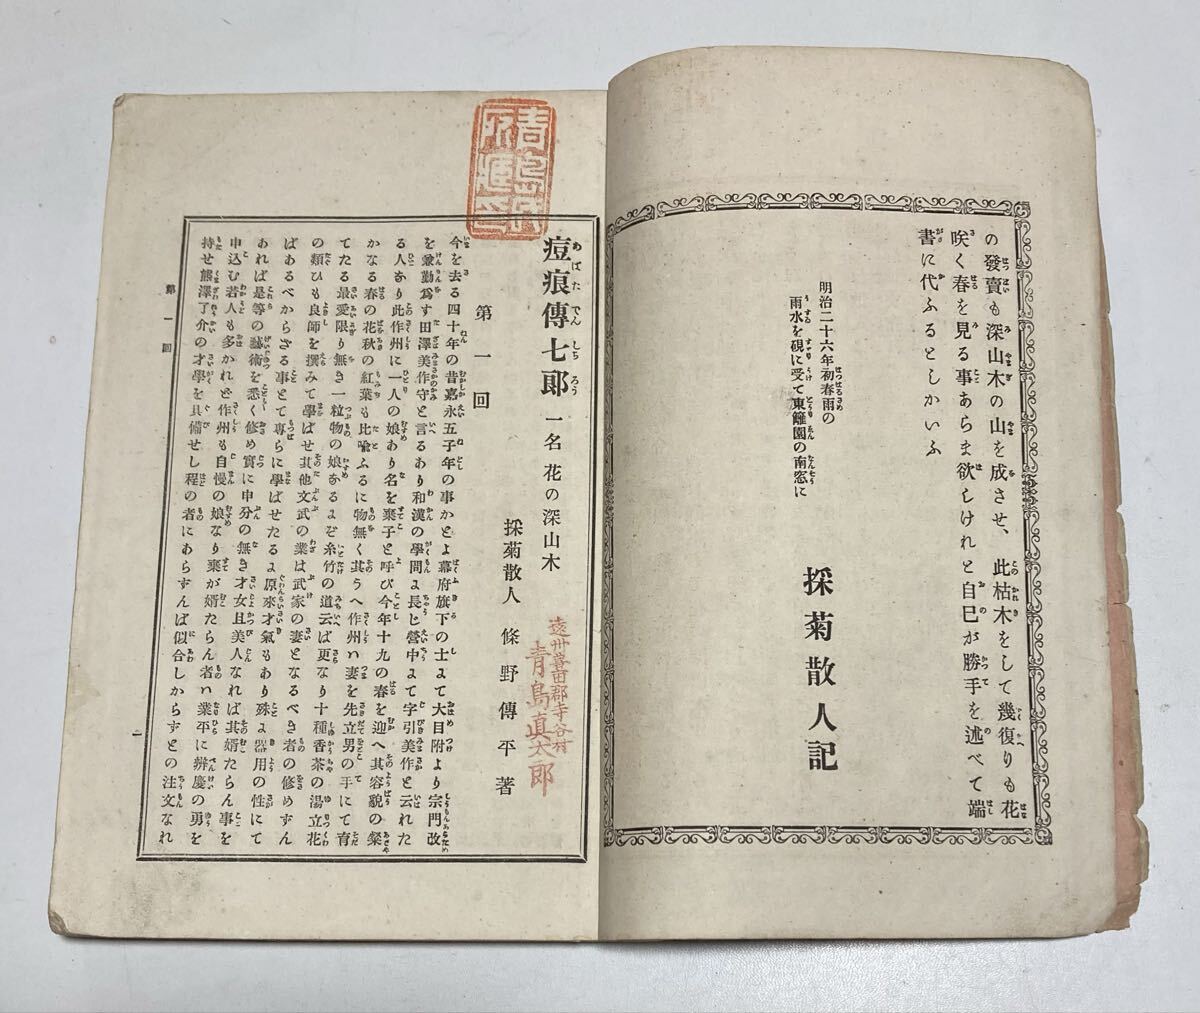 の發賣も深山木の山を成させ、此枯木をして幾復りも花
咲く春を見る事あらま欲しけれと自己が勝手を述べて端
書に代ふるとしかいふ
明治二十六年初春雨の
雨水を硯に受て東籬園の南窓に
採菊散人記
痘痕傳七郎 一名 花の深山木
採菊散人 條野傳平著
遠州豊田郡寺谷村
青島真太郎
第一回
今を去る四十年の昔嘉永五子年の事かとよ幕府旗下の士よて大目附より宗門改
を兼勤爲す田澤美作守と言るあり和漢の學問よ長じ營中よて字引美作と云れた
る人あり此作州に一人の娘あり名を棄子と呼び今年十九の春を迎へ其容貌の粲
かなる春の花秋の紅葉も比喩ふるに物無く其うへ作州ハ妻を先立男の手にて育
てたる最愛限り無き一粒物の娘なるよぞ糸竹の道云ば更なり十種香茶の湯立花
の類ひも良師を撰みて學ばせ其他文武の業は武家の妻となるべき者の修めずん
ばあるべからざる事とて專らに學ばせたるよ原來才氣もあり殊よ器用の性にて
あれば是等の藝術を悉く修め實に申分の無き才女且美人なれば其婿たらん事を
申込む若人も多かれど作州も自慢の娘なり棄が婿たらん者ハ業平に辨慶の勇を
持せ熊澤了介の才學を具備せし程の者にあらずんば似合しからずとの注文なれ
第一回
一